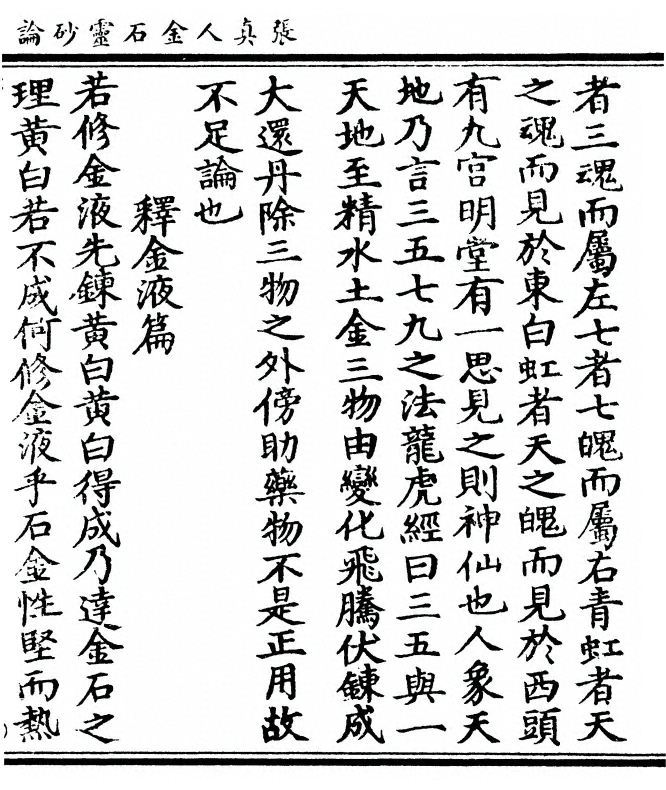 張真人金石靈砂論
者三魂而屬左七者七魄而屬右青虹者天
之魂而見於東白虹者天之魄而見於西頭
有九宮明堂有一思見之則神仙也人象天
地乃言三五七九之法龍虎經曰三五與一
天地至精水土金三物由變化飛騰伏鍊成
大還丹除三物之外傍助藥物不是正用故
不足論也
釋金液篇
若修金液先鍊黃白黃白得成乃達金石之
理黃白若不成何修金液乎石金性堅而熱